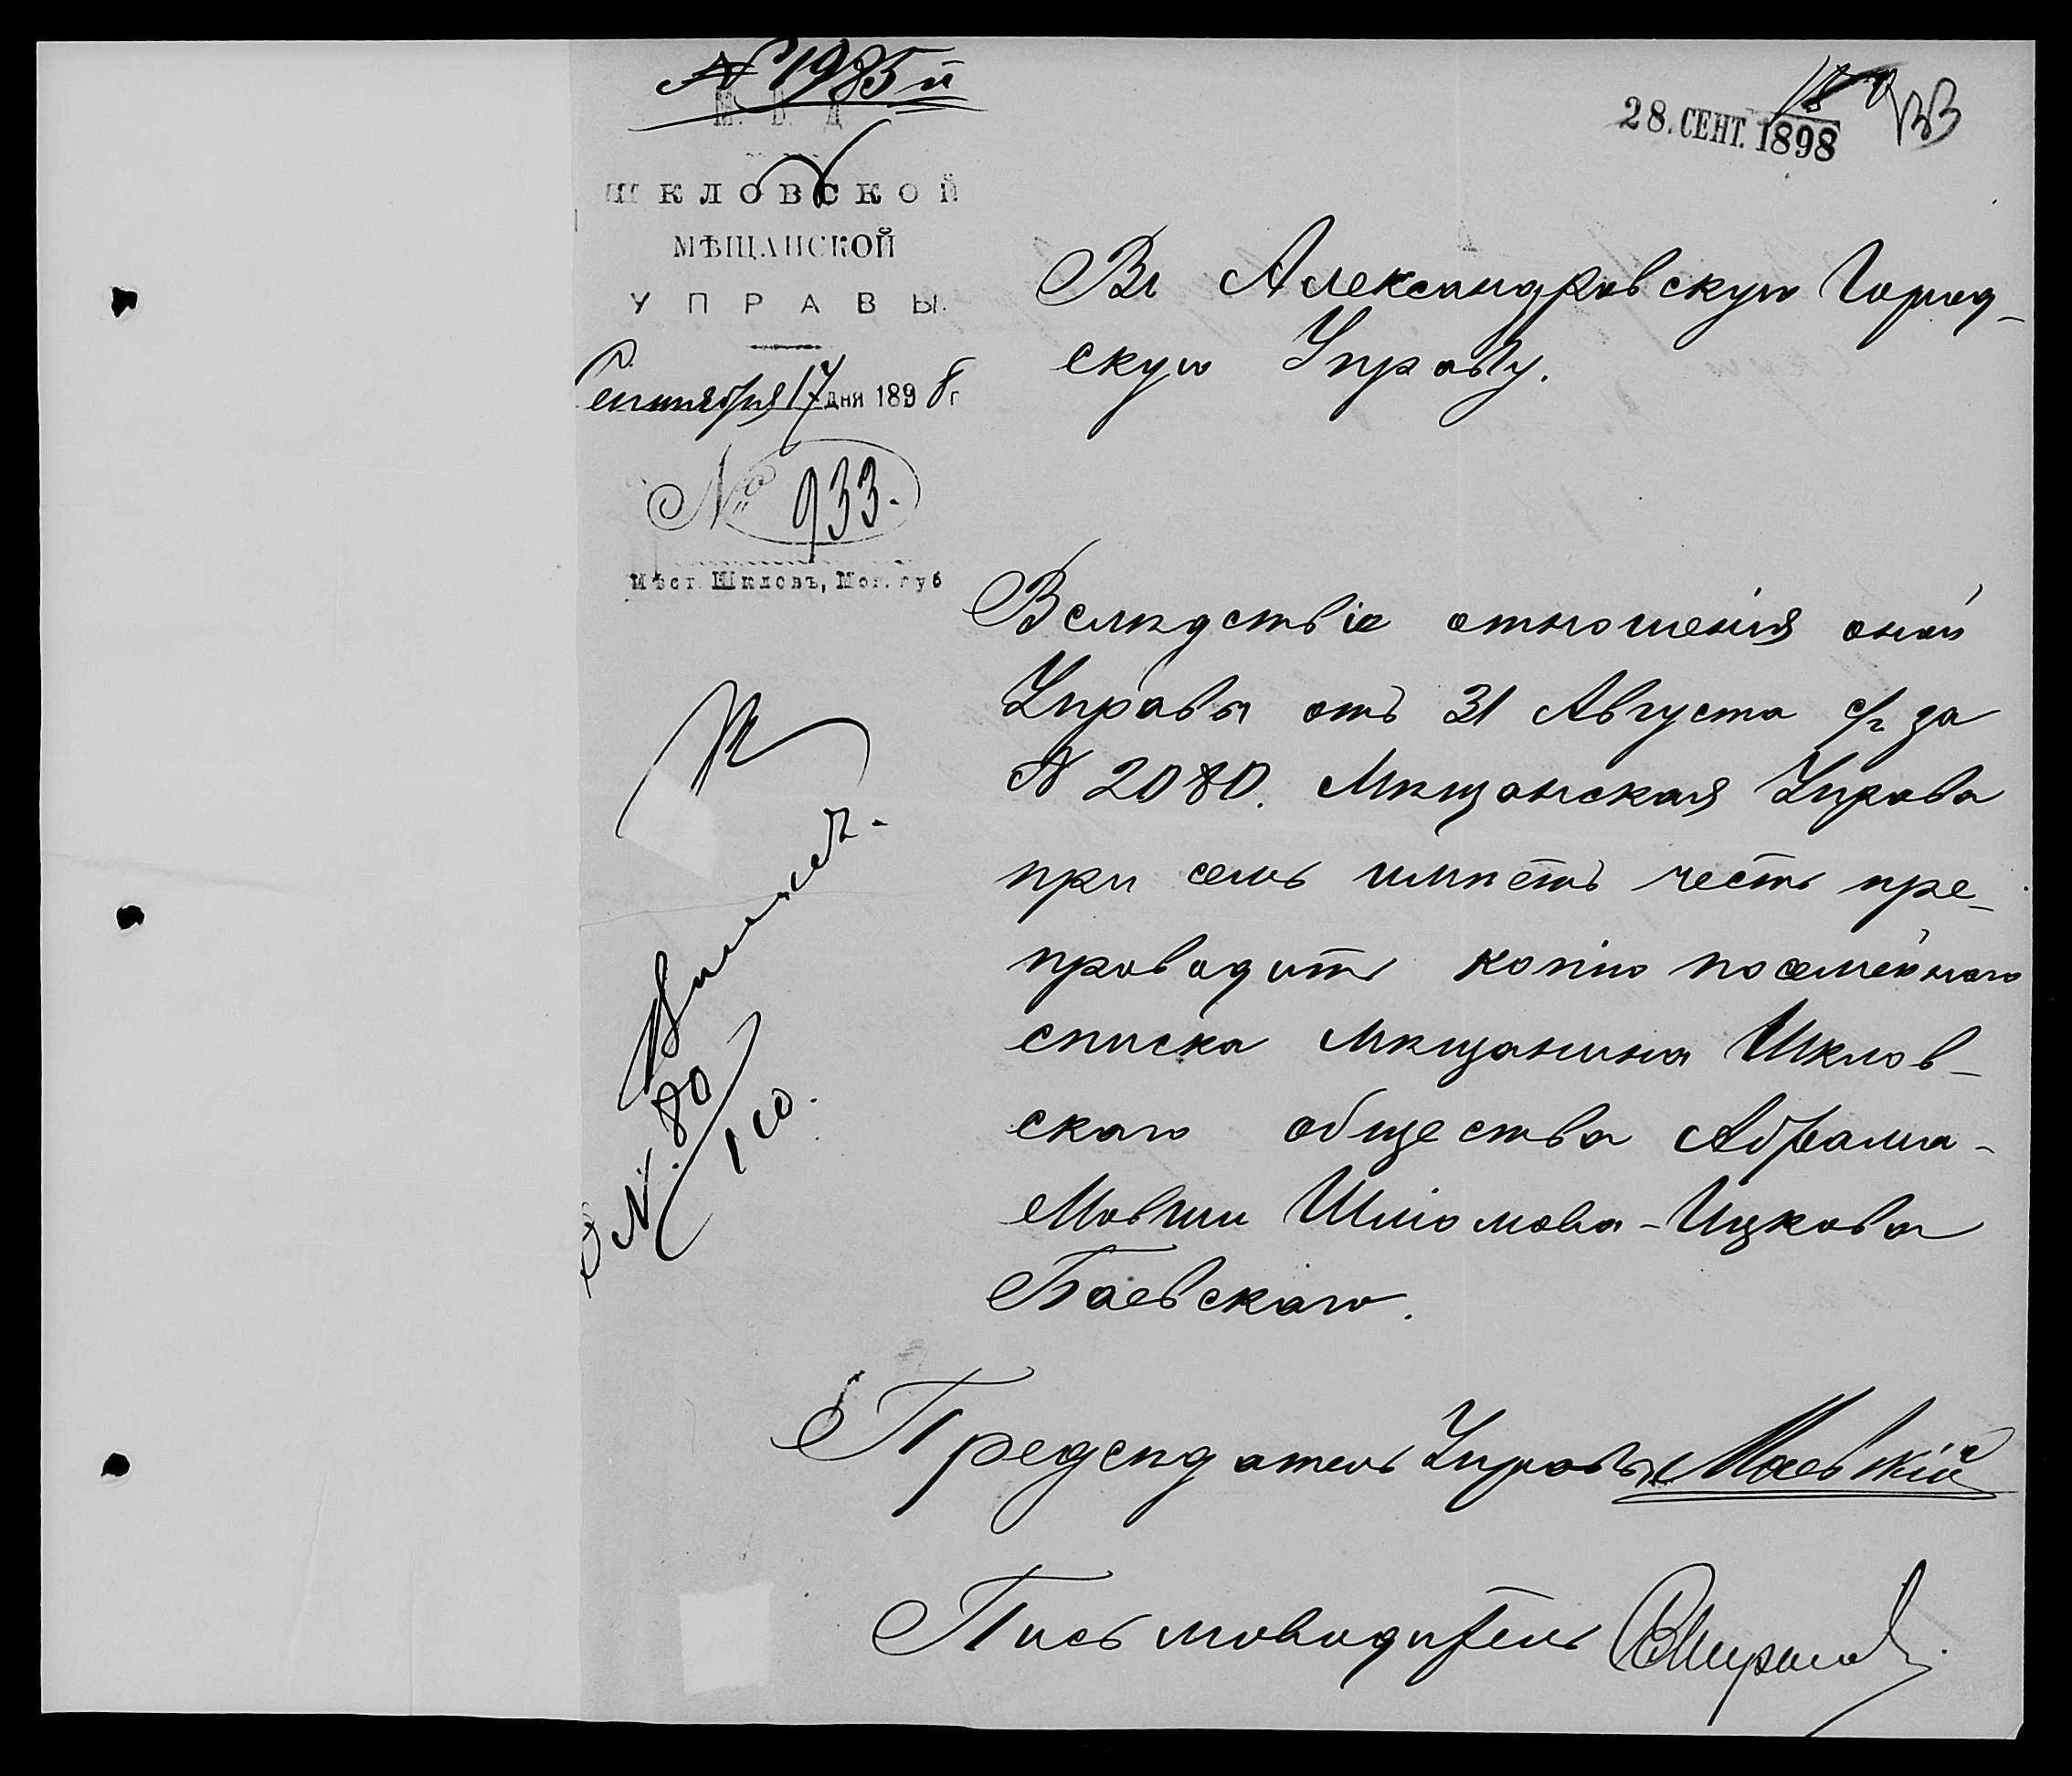 № 1985 й
М. В. Д.
ШКЛОВСКОЙ
МѢЩАНСКОЙ
УПРАВЫ.
Сентября 17 дня 1898 г
№ 933.
Мѣст. Шкловъ, Мог. губ
28. СЕНТ. 1898
133
Въ Александровскую Город-
скую Управу.
Вслѣдствіе отношенія оной
Управы отъ 31 Августа с/г за
№ 2080. Мѣщанская Управа
при семъ имѣетъ честь пре-
проводить копію посемейнаго
списка мѣщанина Шклов-
скаго общества Абрама-
Мовши Шліомова-Ицкова
Баевскаго.
Предсѣдатель Управы Маевскій
Письмоводитель
К
№ 80